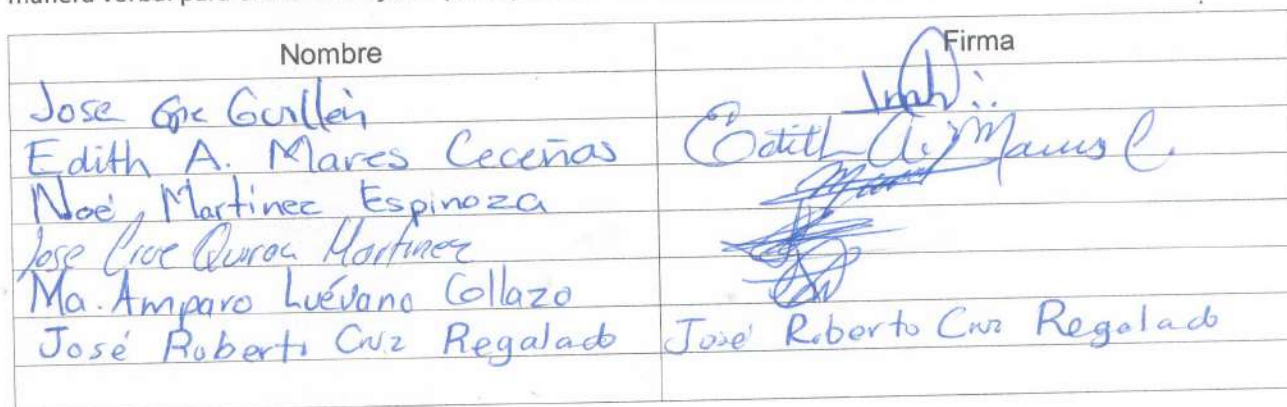 Nombre Firma
Jose Gpe Guillén
Edith A. Mares Ceceñas Edith A. Mares C.
Noé Martinez Espinoza
Jose Martinez
Ma. Amparo Luévano Collazo
José Roberto Cruz Regalado José Roberto Cruz Regalado